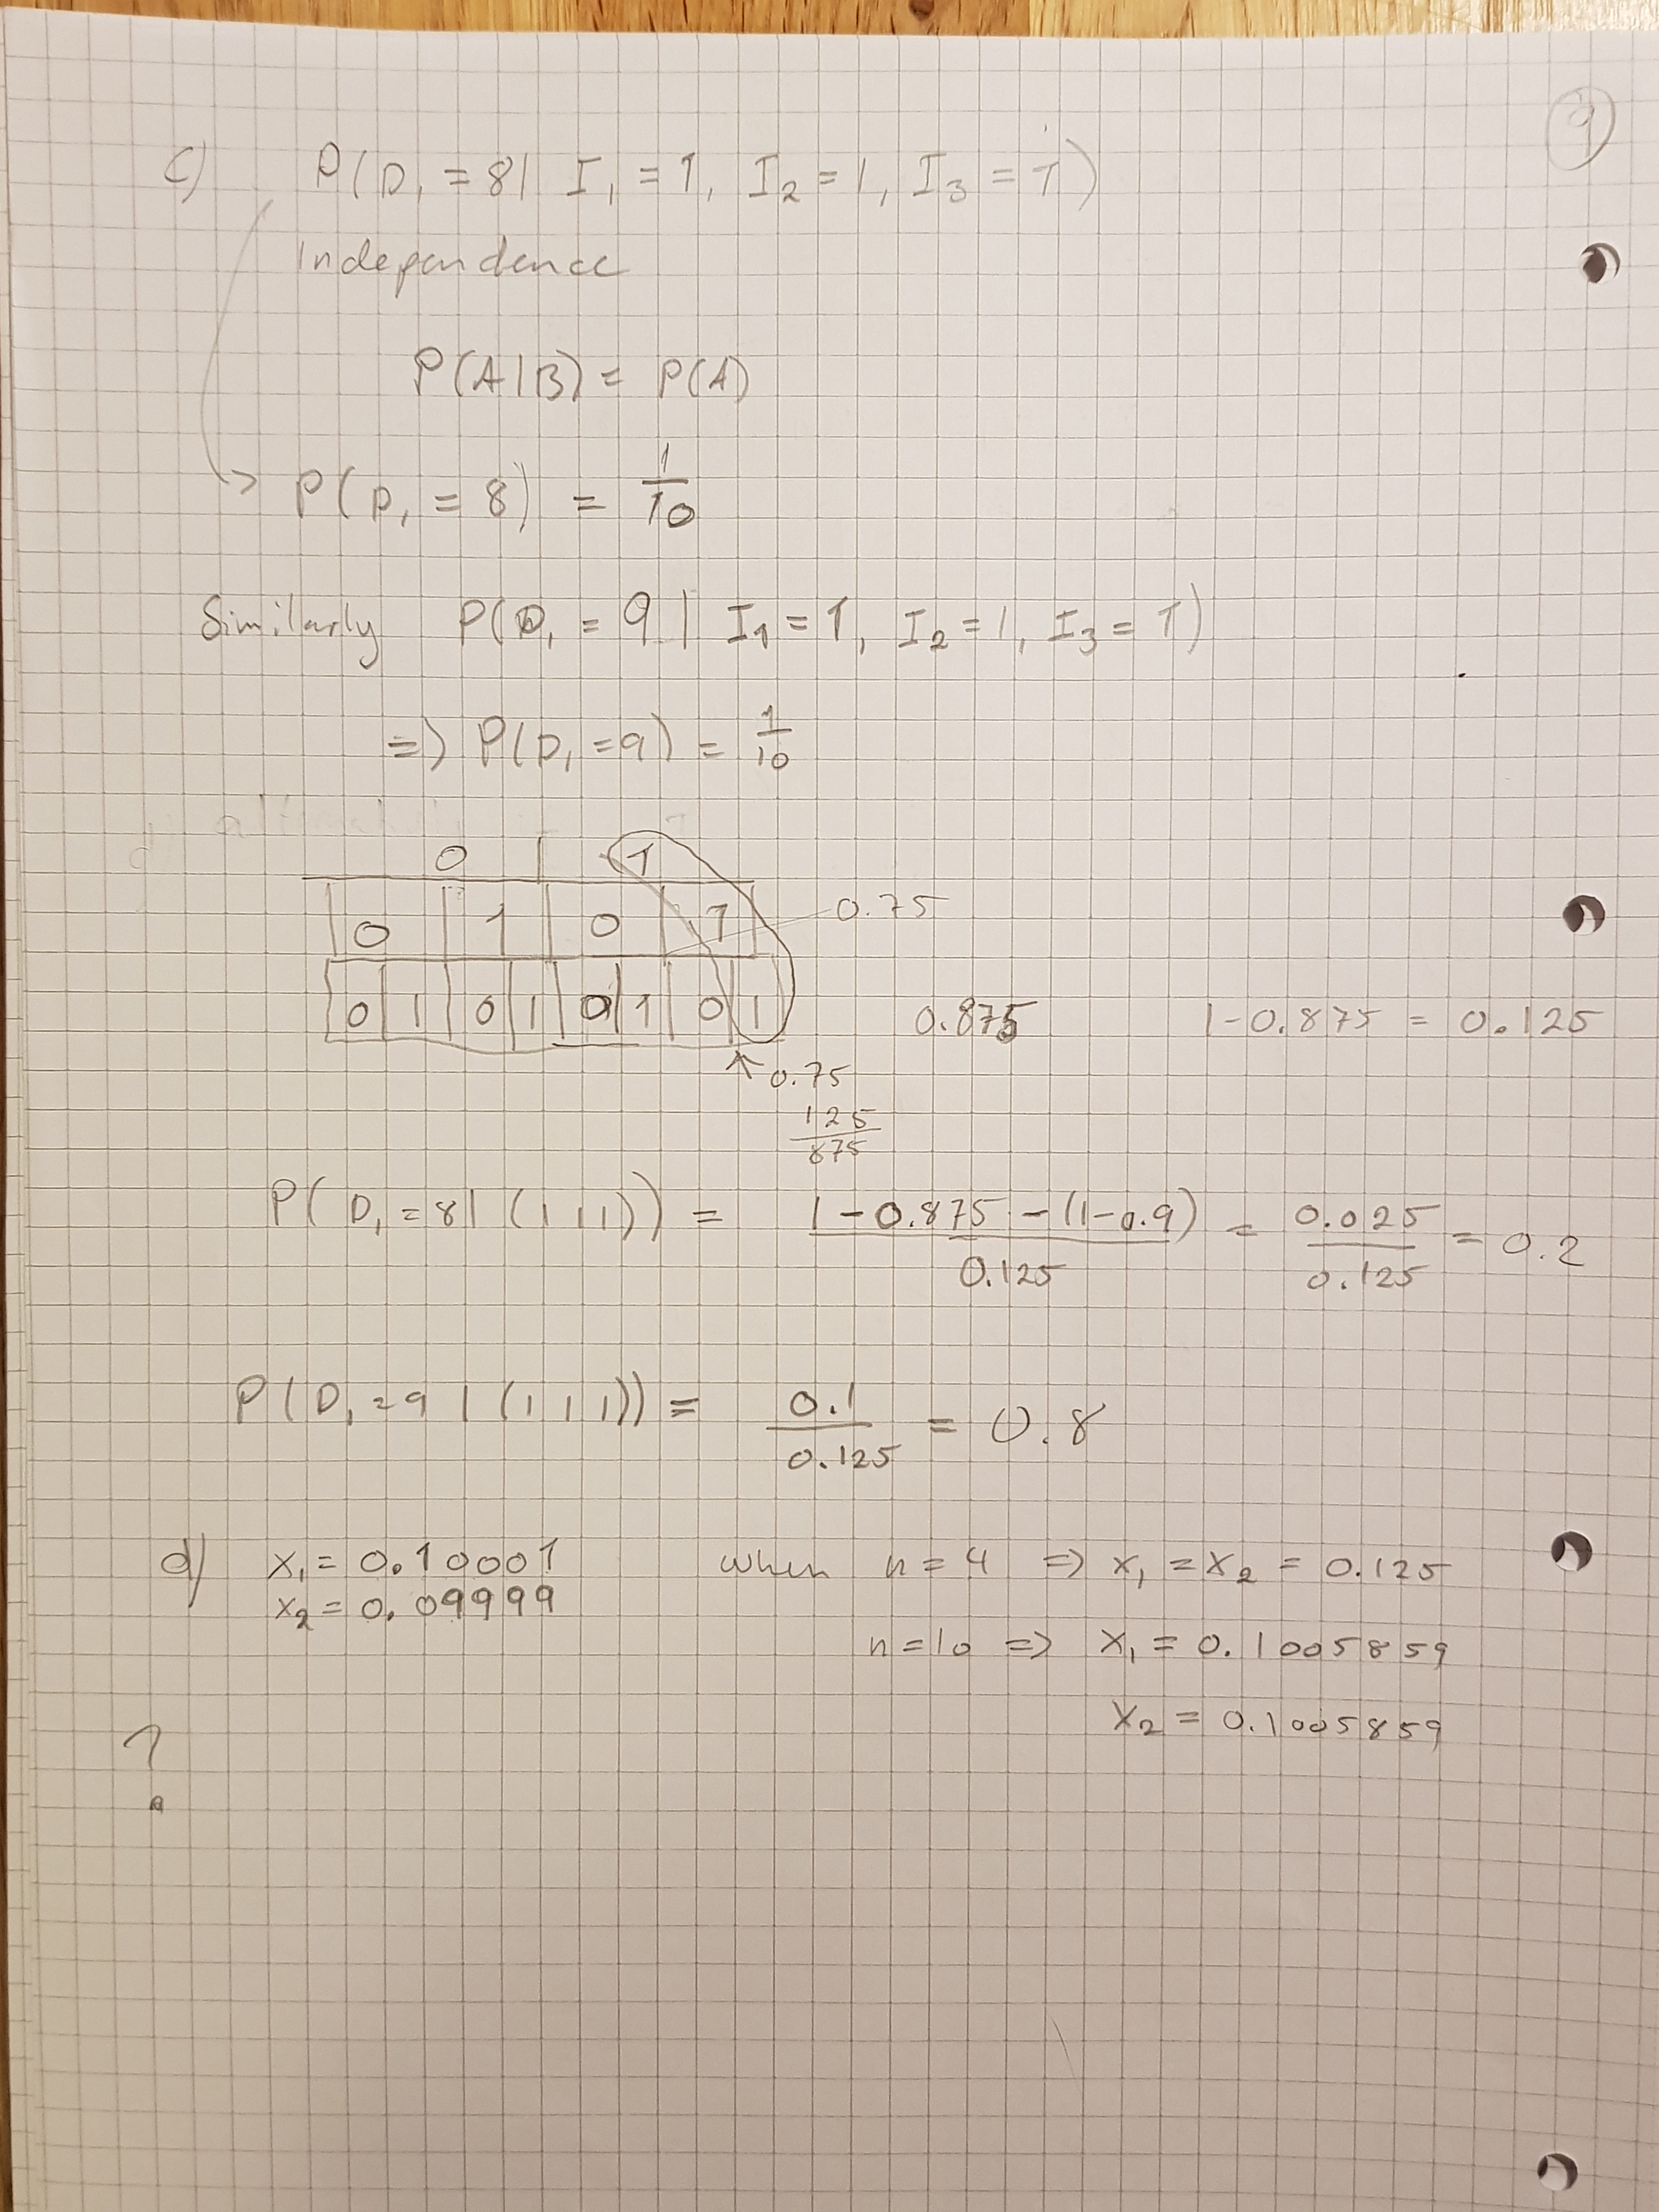 9
c) P(D₁ = 8 | I₁ = 1, I₂ = 1, I₃ = 1)
Independence
P(A|B) = P(A)
-> P(D₁ = 8) = 1/10
Similarly P(D₁ = 9 | I₁ = 1, I₂ = 1, I₃ = 1)
=> P(D₁ = 9) = 1/10
0 | 1
0 | 1 | 0 | 1 0.75
0 | 1 | 0 | 1 | 0 | 1 | 0 | 1 0.875 1-0.875 = 0.125
↑ 0.75
125/875
P(D₁ = 8 | (1 1 1)) = (1 - 0.875 - (1-0.9))/0.125 = 0.025/0.125 = 0.2
P(D₁ = 9 | (1 1 1)) = 0.1/0.125 = 0.8
d) x₁ = 0.10001 when n = 4 => x₁ = x₂ = 0.125
x₂ = 0.09999
n = 10 => x₁ = 0.1005859
x₂ = 0.1005859
?